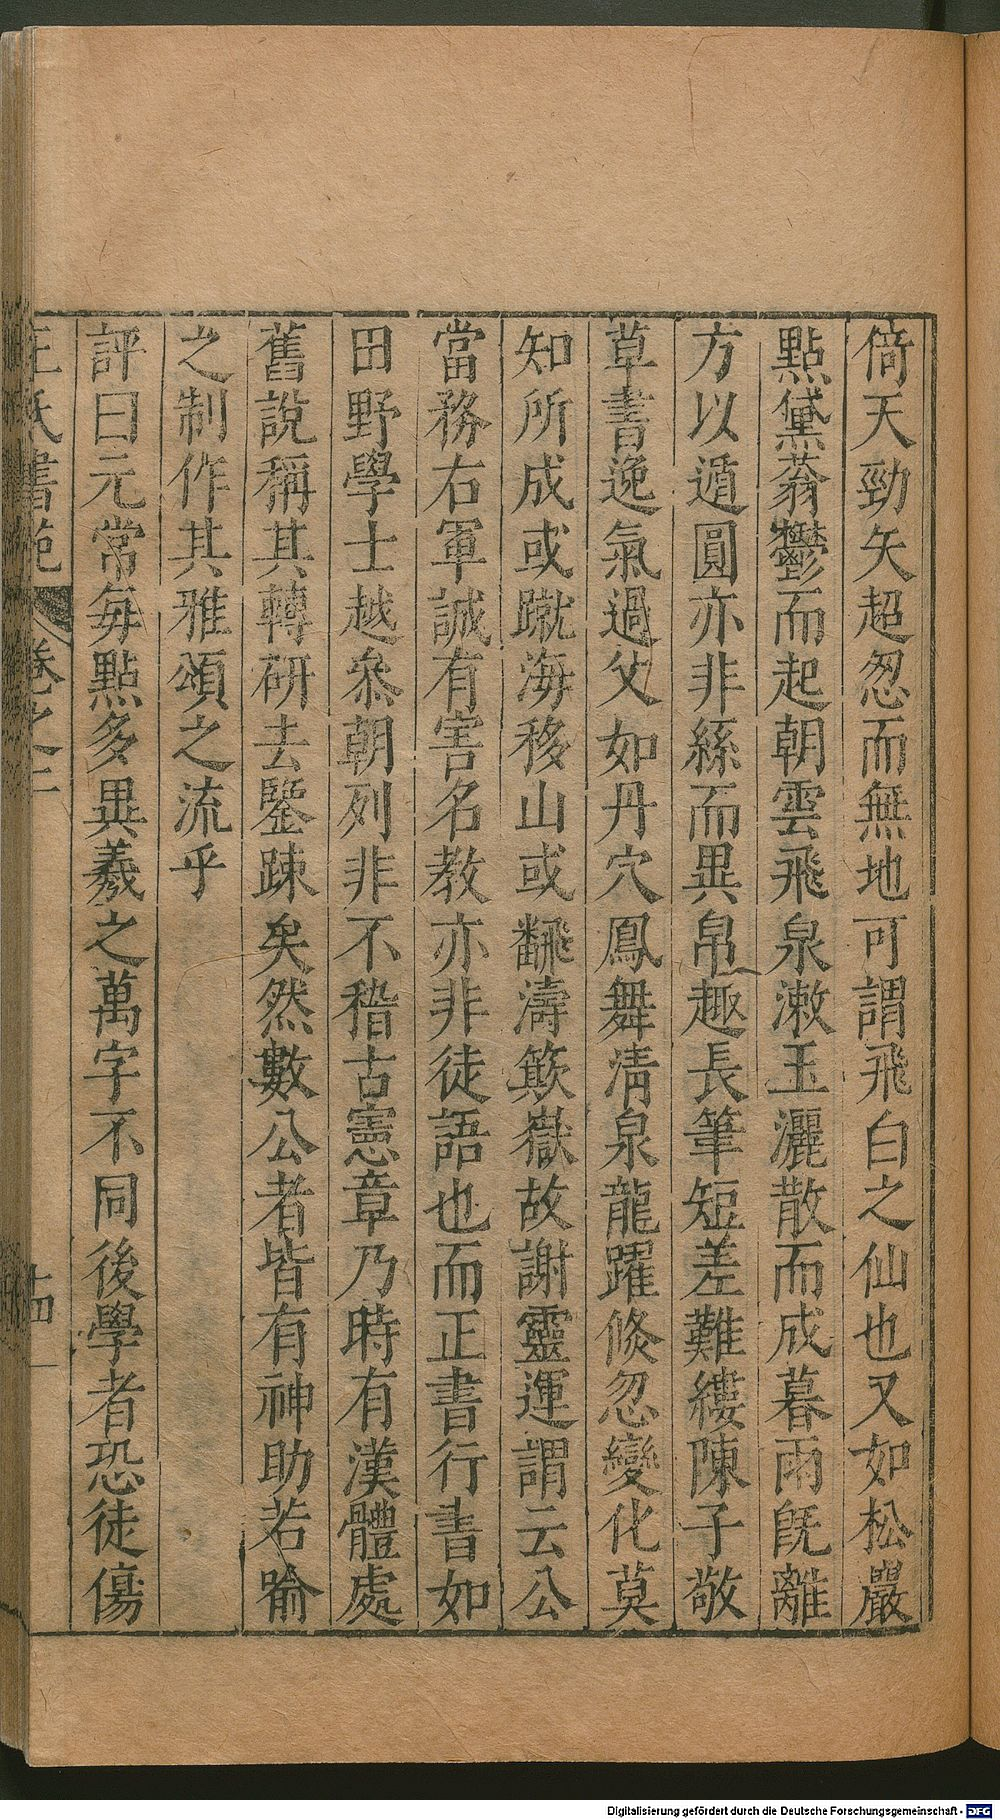 倚天勁矢超忽而無地可謂飛白之仙也又如松巖
點黛蓊鬱而起朝雲飛泉漱玉灑散而成暮雨旣離
方以遁圓亦非絲而異帛趣長筆短差難縷陳子敬
草書逸氣過父如丹穴鳳舞凊泉龍躍倐忽變化莫
知所成或蹴海移山或飜濤簸嶽故謝靈運謂云公
當務右軍誠有害名教亦非徒語也而正書行書如
田野學士越叅朝列非不稽古憲章乃時有漢體處
舊說稱其轉研去鑒踈矣然數公者皆有神助若喻
之制作其雅頌之流乎
評曰元常每點多異羲之萬字不同後學者恐徒傷
王氏書苑
卷之二
十四
Digitalisierung gefördert durch die Deutsche Forschungsgemeinschaft - DFG